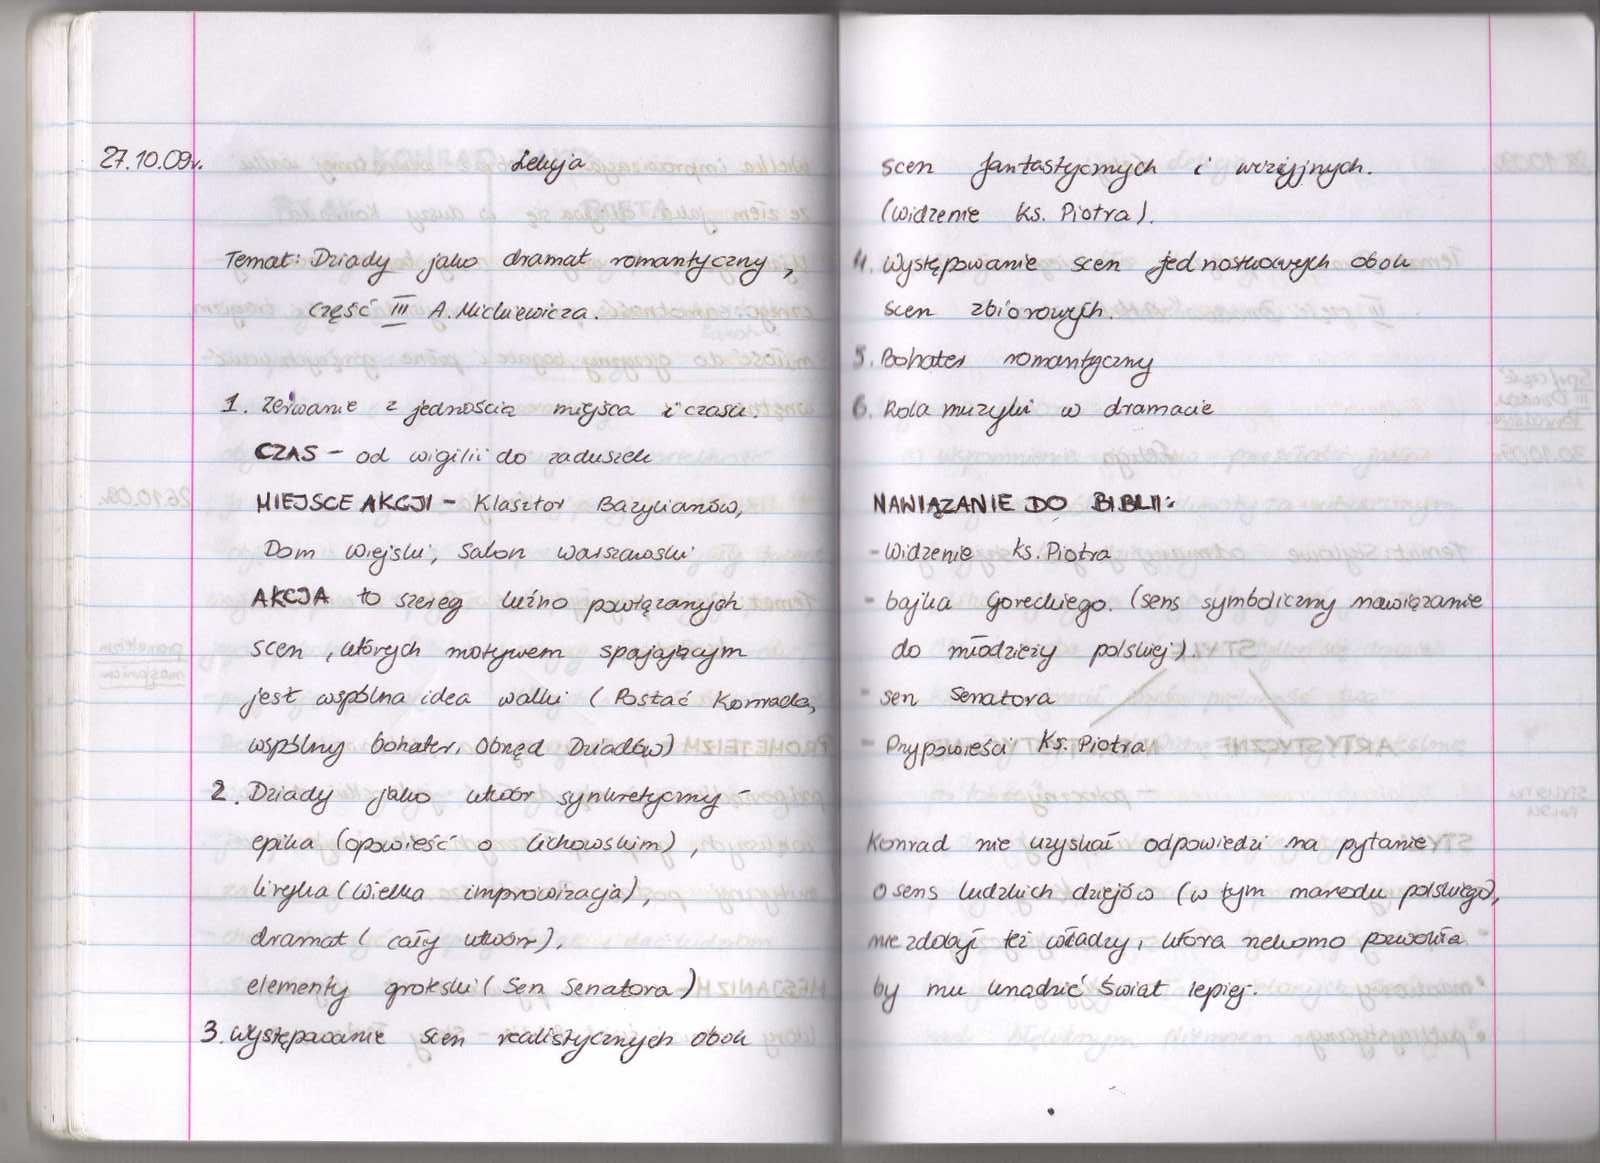 27.10.09r. Lekcja
Temat: Dziady jako dramat romantyczny,
część III A. Mickiewicza.
1. Zerwanie z jednością miejsca i czasu.
CZAS - od wigilii do zaduszek
MIEJSCE AKCJI - Klasztor Bazylianów,
Dom Wiejski, Salon Warszawski
AKCJA to szereg luźno powiązanych
scen, których motywem spajającym
jest wspólna idea walki (Postać Konrada,
wspólny bohater, Obrzęd Dziadów)
2. Dziady jako utwór synkretyczny -
epika (opowieść o Cichowskim),
liryka (Wielka improwizacja),
dramat (cały utwór),
elementy groteski (Sen Senatora)
3. Występowanie scen realistycznych obok
scen fantastycznych i wizyjnych.
(Widzenie Ks. Piotra).
4. Występowanie scen jednostkowych obok
scen zbiorowych.
5. Bohater romantyczny
6. Rola muzyki w dramacie
NAWIĄZANIE DO BIBLII:
- Widzenie Ks. Piotra
- bajka Goreckiego. (sens symboliczny nawiązanie
do młodzieży polskiej).
- sen Senatora
- Przypowieści Ks. Piotra
Konrad nie uzyskał odpowiedzi na pytanie
o sens ludzkich dziejów (w tym narodu polskiego),
nie zdobył też władzy, która rzekomo pozwoliła
by mu urządzić świat lepiej.